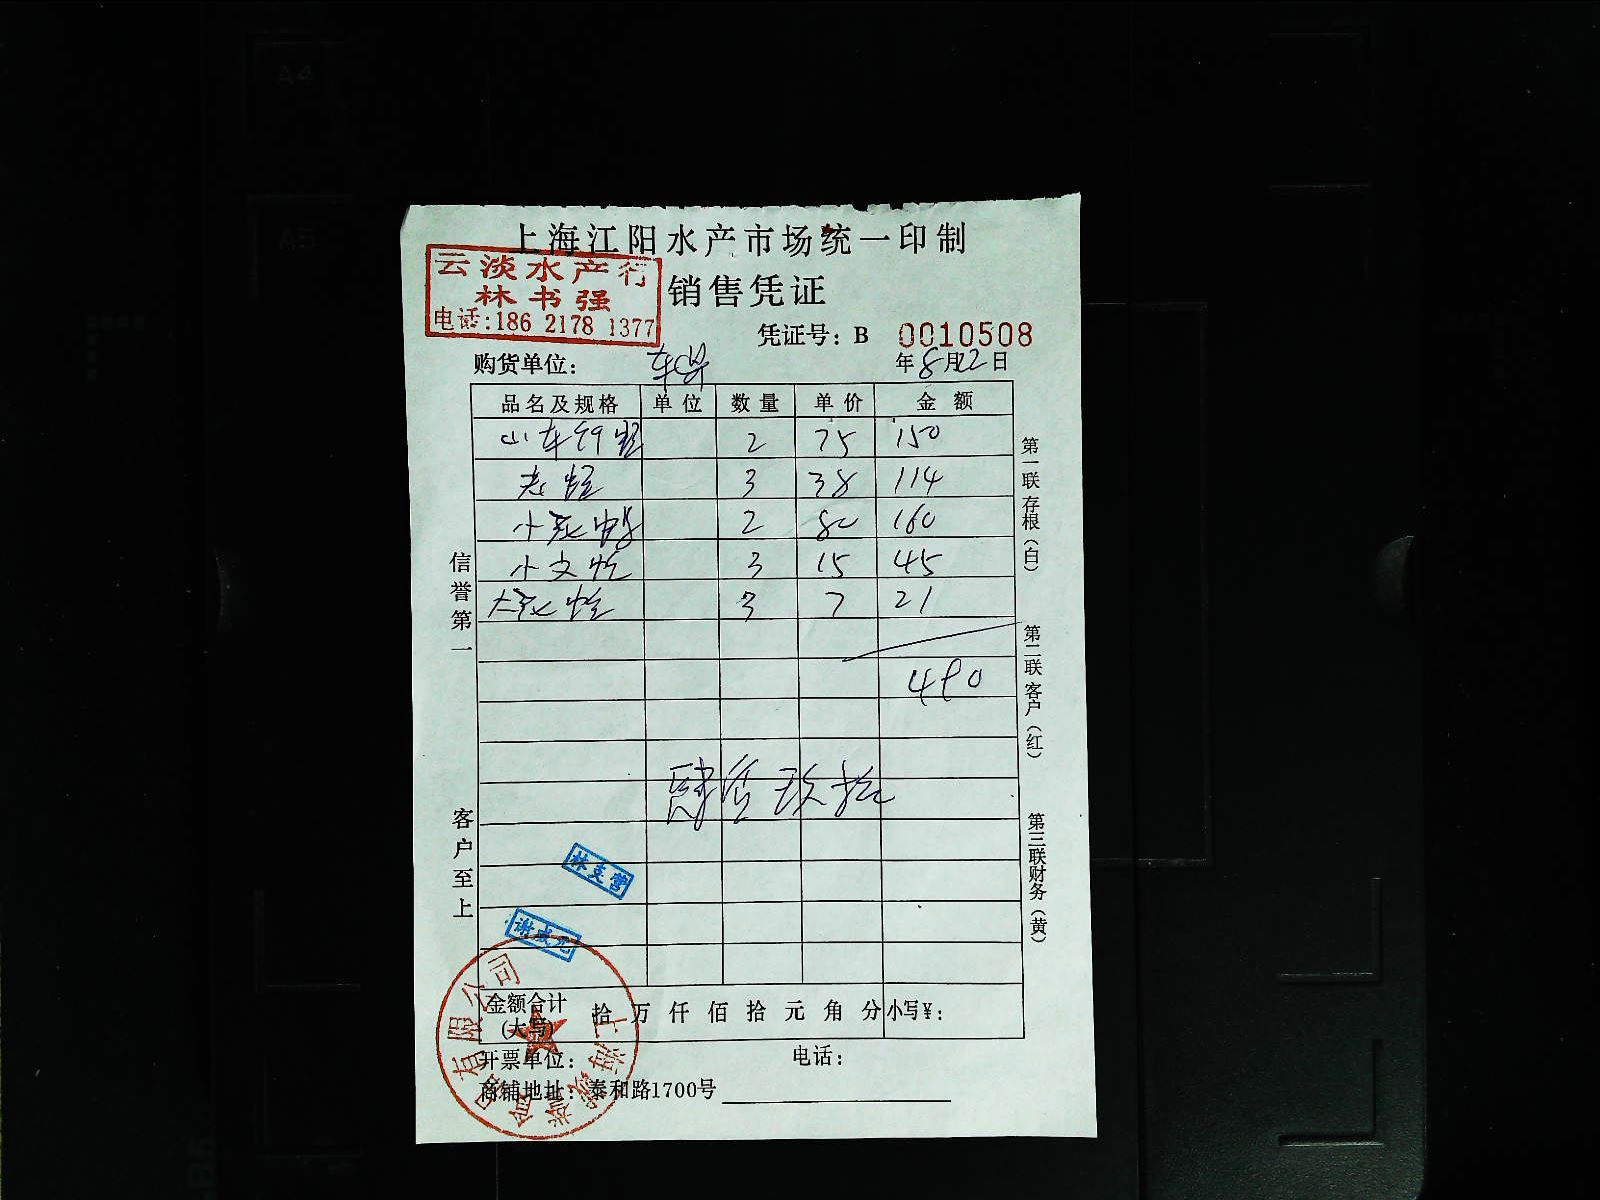 上海江阳水产市场统一印制
云淡水产行
林书强
电话:186 2178 1377
销售凭证
凭证号: B 0010508
购货单位:
年8月22日
品名及规格 单位 数量 单价 金额
2 75 150
3 38 114
2 80 160
3 15 45
3 7 21
490
肆佰玖拾
信誉第一
客户至上
第一联存根(白)
第二联客户(红)
第三联财务(黄)
林支营
谢成元
金额合计(大写) 拾 万 仟 佰 拾 元 角 分 小写¥:
开票单位: 电话:
商铺地址: 泰和路1700号